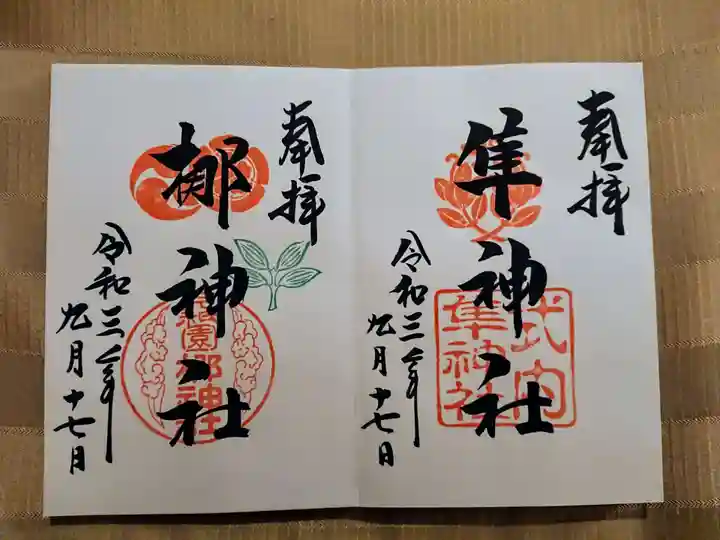 奉拝
隼神社
式内
隼神社
令和三年
九月十七日
奉拝
梛神社
祇園梛神社
令和三年
九月十七日